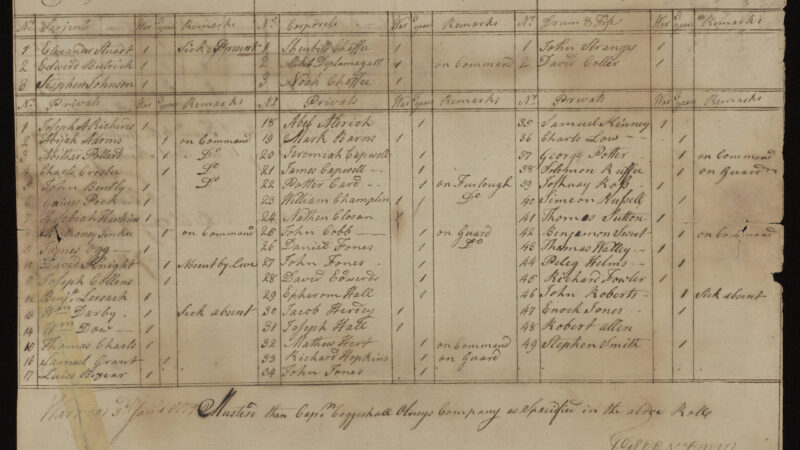 No. Serjents War 3 years Remarks No. Corporels War 3 years Remarks No. Drum & Fife War 3 years Remarks
1 Elexander Stuart 1 Sick Present 1 Chaffee 1 1 John Strange 1
2 Edward 1 2 1 on Command 2 David Coller 1
3 Stephen Johnson 1 3 Noah Chaffee 1
No. Privats War 3 years Remarks No. Privats War 3 years Remarks No. Privats War 3 years Remarks
1 Joseph A Richards 1
2 Abijah Adams 1 on Command
3 Abithar Pollard 1 Do
4 Charls Crosbe 1 Do
5 John Bently 1 Do
Peck 1
7 Hawkins 1
Anthoney 1 on Command
9 James 1
10 David Knight 1 Absent by Leve
11 Joseph Collens 1
12 Benja 1
13 Wm Darby 1 Sick absent
14 Wm Dow 1
15 Thomas Charls 1
16 Samuel Grant 1
17 1
18 Abel 1
19 Mark Barns 1
20 Jeremiah Capwell 1
21 James Capwell 1
22 Potter Card 1 on Furlough
23 William Champlin 1 Do
24 Nathan Closon 1
25 John Cobb 1 on Guard
26 Daniel Fones 1 Do
27 John Fones 1
28 David Edwerds 1
29 Epherom Hall 1
30 Jacob 1
31 Joseph Hall 1
32 Mathew Hert 1 on Command
33 Richard Hopkins 1 on Guard
34 John Jones 1
35 Samuel Kinney 1
36 Charls Low 1
37 George Potter 1 on Command
38 Solomon 1 on Guard
39 Joshuay Ross 1
40 Simeon Russell 1
41 Thomas Sutton 1
42 Benjamon Sweet 1 on Command
Thomas Watley 1
44 Peleg Helms 1
45 Richard Fowler 1
46 John Roberts 1 Sick absent
47 Enoch Jones 1
48 Robert allen 1
49 Stephen Smith 1
Warren 3d Musterd then Capn Coggeshall Olneys Company as Specified in the above Rolls